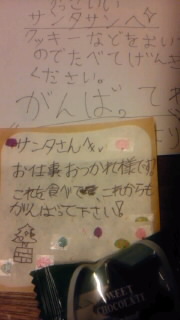 サンタサンへ
クッキーなどをおいた
のでたべてげんき
ください。
がんば。
サンタさんへ
お仕事おつかれ様です。
これを食べて、これからも
がんばって下さい!
SWEET
CHOCOLATE